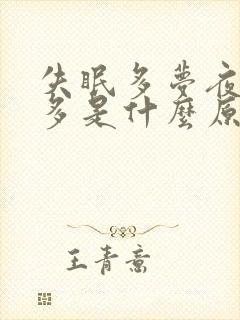 失眠多夢夜
多是什麼原
王青意